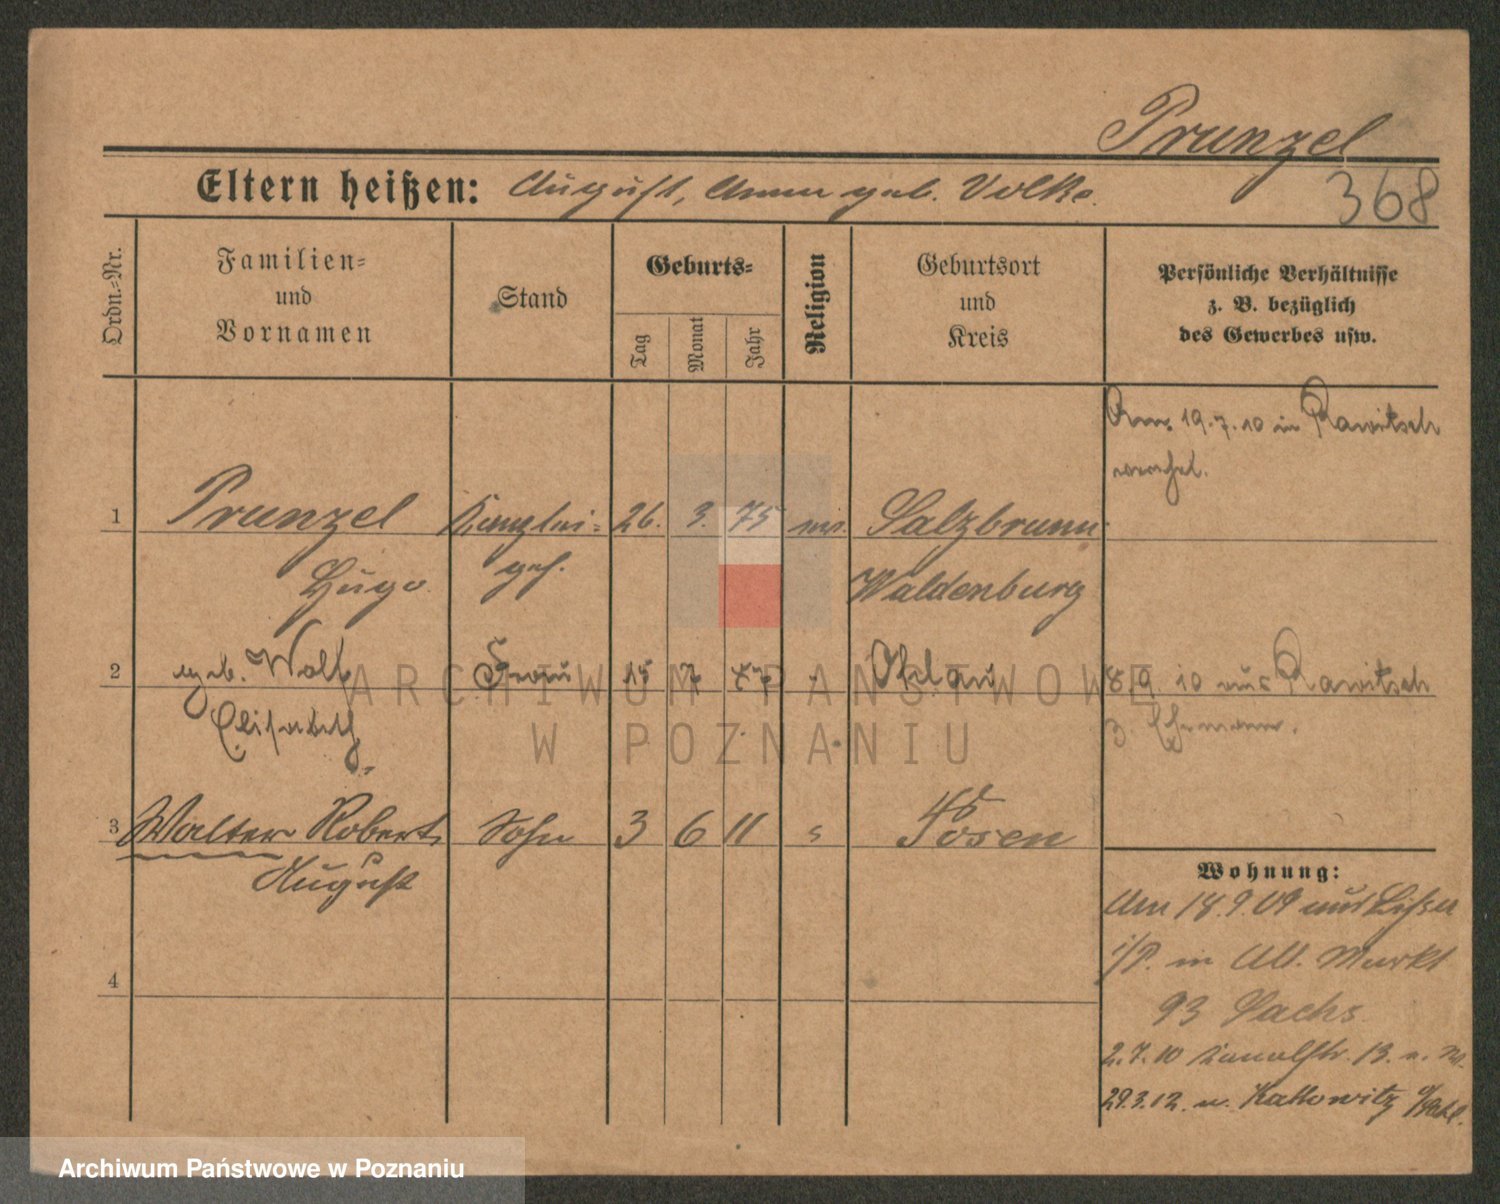 Prunzel
368
Eltern heißen: August, Anna geb. Volke.
Ordn.-Nr.
Familien-
und
Vornamen
Stand
Geburts-
Tag
Monat
Jahr
Religion
Geburtsort
und
Kreis
Persönliche Verhältnisse
z. B. bezüglich
des Gewerbes usw.
Am 19.7.10 in Rawitsch
1 Prunzel Kanzlei- 26. 3. 75 Salzbrunn
Hugo geh. Waldenburg
2 geb. Wolf Frau 15 7 Ohlau 8 9 10 aus Rawitsch
Elisabeth z. Ehemann.
3 Walter Robert Sohn 3 6 11 Posen
August
Wohnung:
Am 18.9.09 aus Lissa
i/P. in Alt. Markt
93 Sachs
4
2.7.10 Kanalstr. 13.
29.3.12. n. Kattowitz
ARCHIWUM PAŃSTWOWE
W POZNANIU
Archiwum Państwowe w Poznaniu